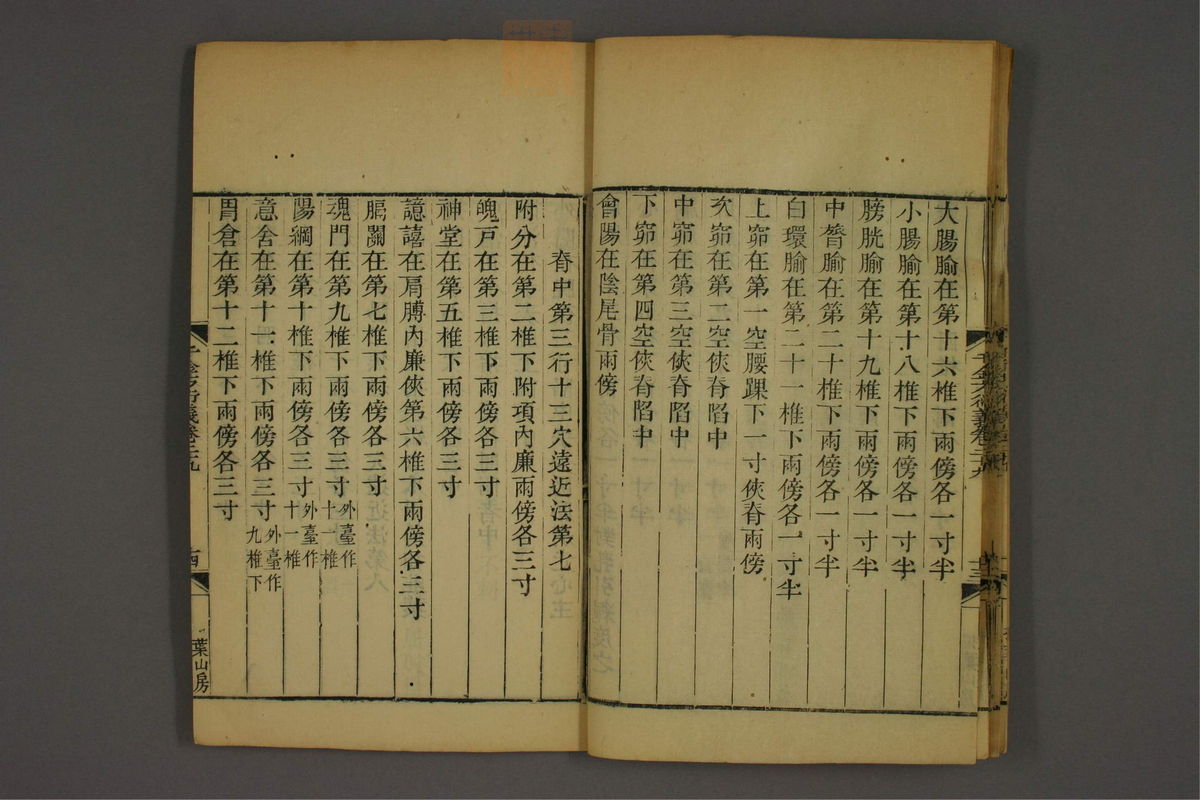 大腸腧在第十六椎下兩傍各一寸半
小腸腧在第十八椎下兩傍各一寸半
膀胱腧在第十九椎下兩傍各一寸半
中膂腧在第二十椎下兩傍各一寸半
白環腧在第二十一椎下兩傍各一寸半
上窌在第一空腰踝下一寸俠脊兩傍
次窌在第二空俠脊陷中
中窌在第三空俠脊陷中
下窌在第四空俠脊陷中
會陽在陰尾骨兩傍
脊中第三行十三穴遠近法第七
附分在第二椎下附項內廉兩傍各三寸
魄戸在第三椎下兩傍各三寸
神堂在第五椎下兩傍各三寸
譩譆在肩膊內廉俠第六椎下兩傍各三寸
膈關在第七椎下兩傍各三寸
魂門在第九椎下兩傍各三寸外臺作十一椎
陽綱在第十椎下兩傍各三寸外臺作十一椎
意舍在第十一椎下兩傍各三寸外臺作九椎下
胃倉在第十二椎下兩傍各三寸
千金方衍義卷二十九
十四
葉山房